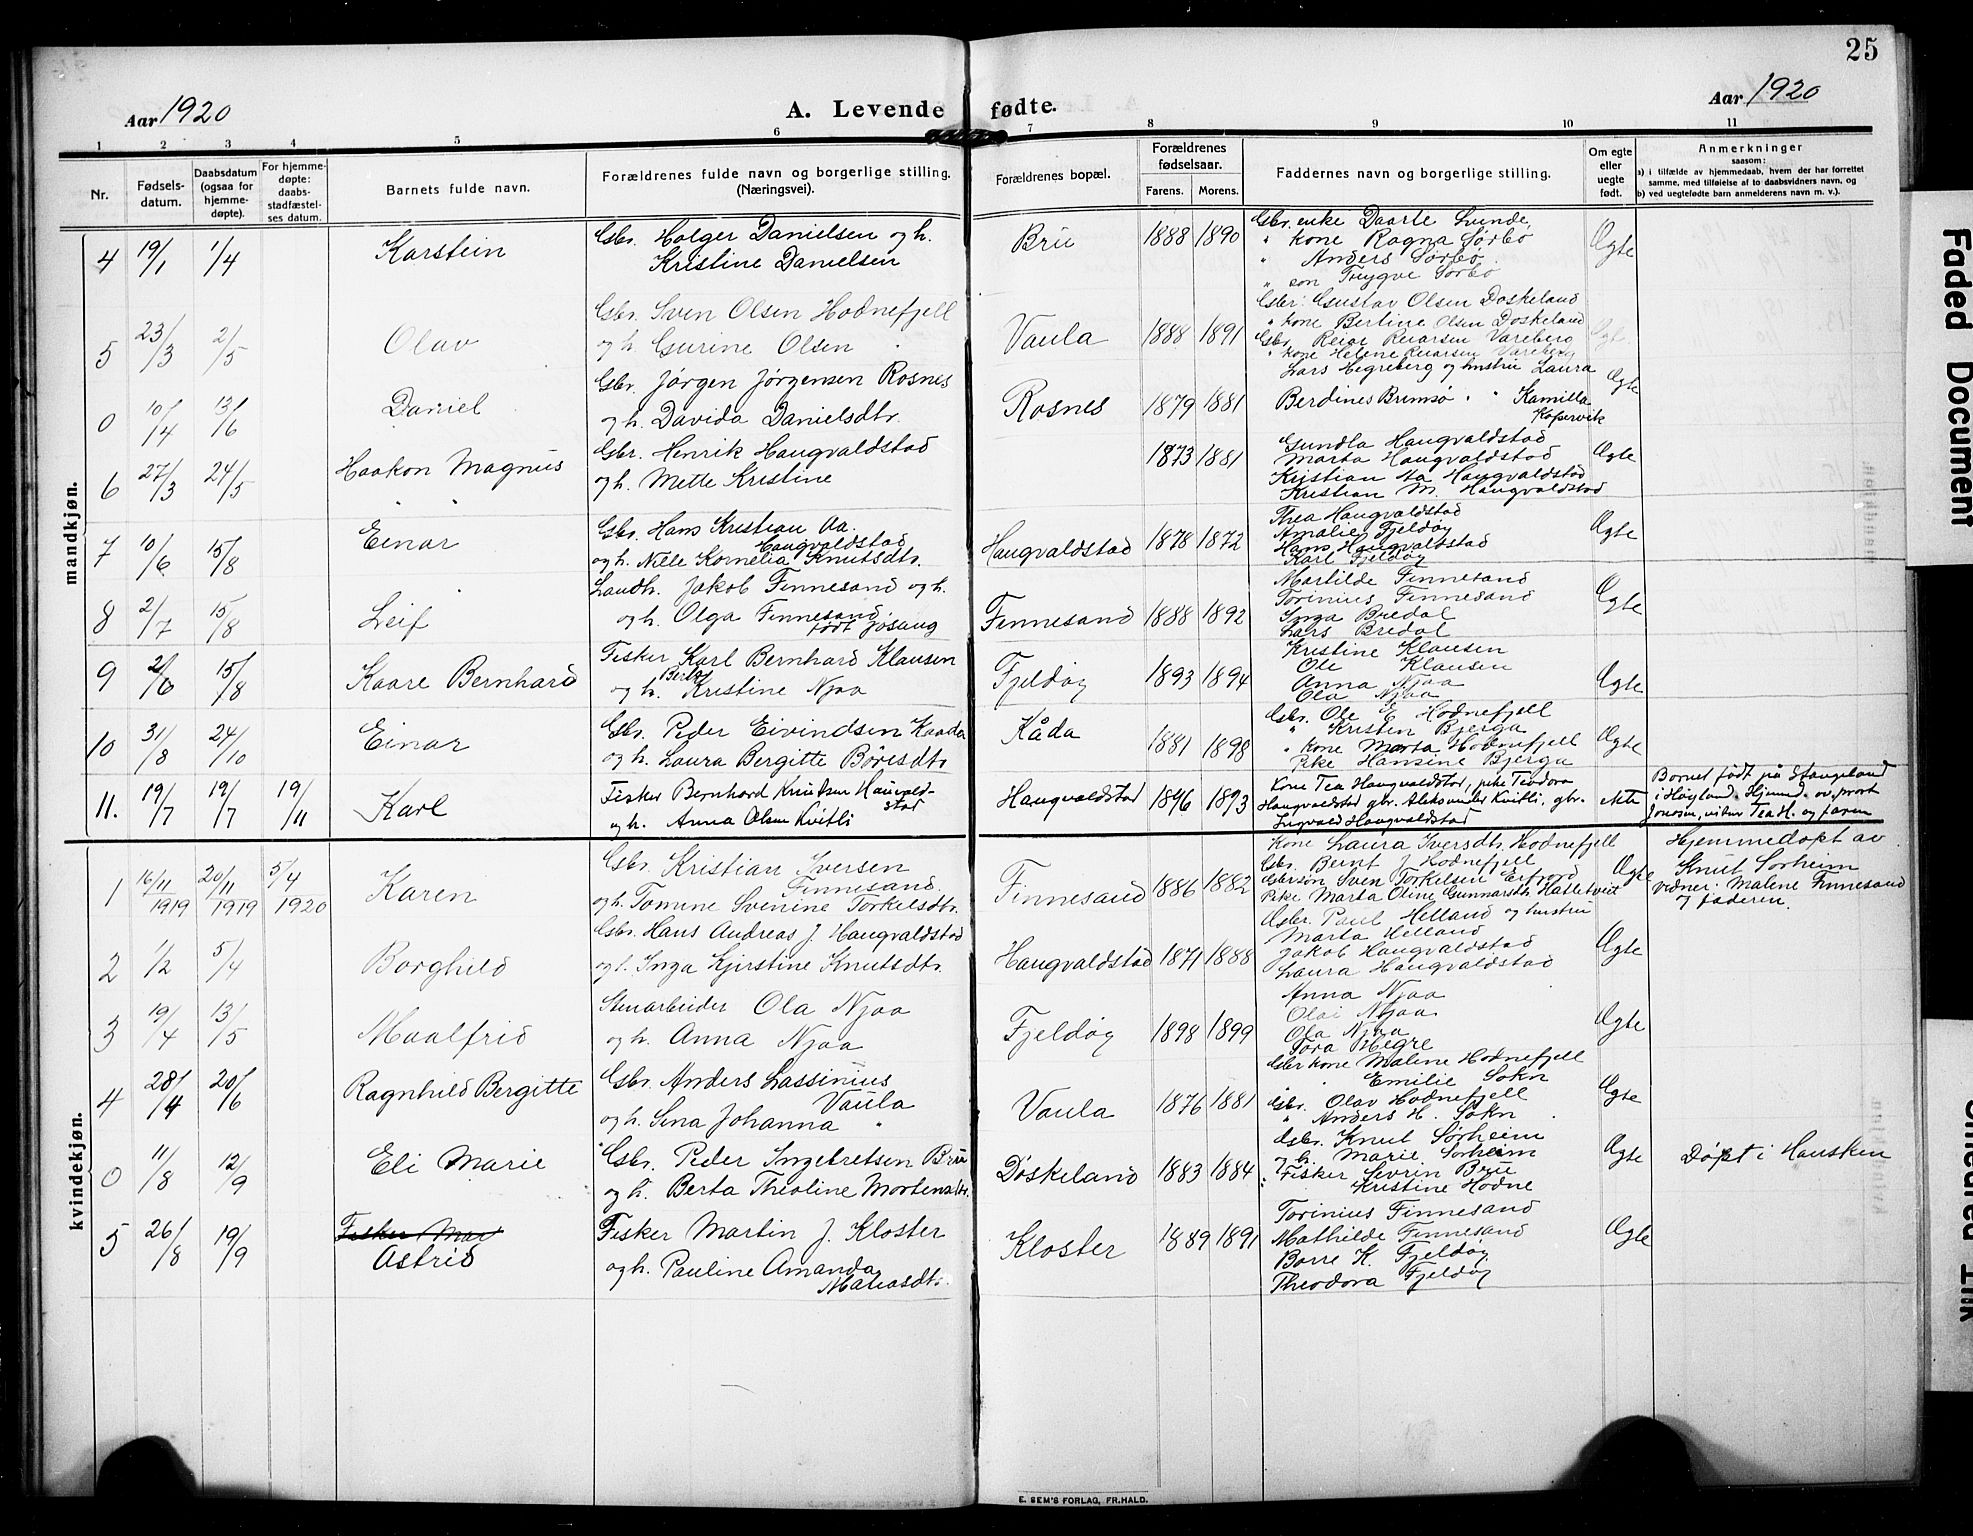 25
Aar 1920
A. Levende fødte.
Aar 1920
1 2 3 4 5 6 7 8 9 10 11
Nr.
Fødselsdatum.
Daabsdatum (ogsaa for hjemmedøpte).
For hjemmedøpte: daabsstadfæstelses datum.
Barnets fulde navn.
Forældrenes fulde navn og borgerlige stilling. (Næringsvei).
Forældrenes bopæl.
Forældrenes fødselsaar.
Farens. Morens.
Faddernes navn og borgerlige stilling.
Om egte eller uegte født.
Anmerkninger
saasom:
a) i tilfælde av hjemmedaab, hvem der har forrettet samme, med tilføielse af to daabsvidners navn, og
b) ved uegtefødte barn anmelderens navn m. v.).
mandkjøn.
4 19/1 1/4 Karstein
Gbr. Holger Danielsen og h.
Kristine Danielsen
Bru 1888 1890
Gbr. enke Daarte Lunde,
" kone Ragna Sørbø
" Anders Sørbø
" søn Trygve Sørbø
Ægte
5 23/3 2/5 Olav
Gbr. Sven Olsen Hodnefjell
og h. Gurine Olsen "
Vaula 1888 1891
Gbr. Gustav Olsen Døskeland
" kone Bertine Olsen Døskeland
Gbr. Reiar Reiarsen Vareberg
" kone Helene Reiarsen Vareberg
Ægte
0 10/4 13/6 Daniel
Gbr. Jørgen Jørgensen Rosnes
og h. Davida Danielsdtr.
Rosnes 1879 1881
Lars Hegreberg og hustru Laura
Berdines Brimsø " " Kamilla
Kopervik
Ægte
6 27/3 24/5 Haakon Magnus
Gbr. Henrik Haugvaldstad
og h. Mette Kristine
" "
1873 1881
Gundla Haugvaldstad
Marta Haugvaldstad
Kristian Aa Haugvaldstad
Kristian M. Haugvaldstad
Ægte
7 10/6 15/8 Einar
Gbr. Hans Kristian Aa.
Haugvaldstad
og h. Nille Kornelia Knutsdtr.
Haugvaldstad 1878 1872
Thea Haugvaldstad
Amalie Fjeldøy
Hans Haugvaldstad
Karl Fjeldøy
Ægte
8 2/7 15/8 Leif
Landh. Jakob Finnesand og h.
og h. Olga Finnesand
født Jøsang
Finnesand 1888 1892
Martilde Finnesand
Torinius Finnesand
Inga Bredal
Lars Bredal
Ægte
9 2/6 15/8 Kaare Bernhard
Fisker Karl Bernhard Klausen
og h. Berta Kristine Njaa
Fjeldøy 1893 1894
Kristine Klausen
Ole Klausen
Anna Njaa
Ola Njaa
Ægte
10 31/8 24/10 Einar
Gbr. Peder Eivindsen Kaada
og h. Laura Bergitte Børesdtr
Kåda 1881 1898
Gbr. Ole E. Hodnefjell
" Kristen Bjerga
" kone Marta Hodnefjell
Pike Hansine Bjerga
Ægte
11. 19/7 19/7 19/11 Karl
Fisker Bernhard Knudsen Haugvaldstad
og h. Anna Olsen Kvitli
Haugvaldstad 1896 1893
Kone Tea Haugvaldstad, pike Teodora
Haugvaldstad gbr. Aleksander Kvitli, gbr.
Ingvald Haugvaldstad
ekte
Barnet født på Stangeland
i Høyland. Hjemmed. ov. prost
Jonson, vitner Tea H. og faren
kvindekjøn.
1 16/11 1919 20/11 1919 5/4 1920 Karen
Gbr. Kristian Iversen
Finnesand.
og h. Tomine Svenine Torkelsdtr.
Finnesand 1886 1882
Kone Laura Iversdtr. Hodnefjell
Gbr. Bernt J. Hodnefjell
Gbrsøn Sven Torkelsen Erfjord
Pike Marta Oline Gunnarsdtr Halletveit
Ægte
Hjemmedøpt av
Knut Sørheim
vidner: Malene Finnesand
og faderen.
2 1/2 5/4 Borghild
Gbr. Hans Andreas J. Haugvaldstad
og h. Inga Kjirstine Knutsdtr.
Haugvaldstad 1871 1888
Gbr. Paul Helland og hustru
Marta Helland
Jakob Haugvaldstad
Laura Haugvaldstad
Ægte
3 19/4 13/5 Maalfrid
Stenarbeider Ola Njaa
og h. Anna Njaa
Fjeldøy 1898 1899
Anna Njaa
Olai Njaa
Ola Njaa
Tora Hegre
Ægte
4 28/4 20/6 Ragnhild Bergitte
Gbr. Anders Lassinius
Vaula
og h. Sina Johanna "
Vaula 1876 1881
Gbr kone Malene Hodnefjell
" " Emilie Sokn
Gbr. Olav Hodnefjell
" Anders H. Sokn
Ægte
0 11/8 12/9 Eli Marie
Gbr. Peder Ingebretsen Bru
og h. Berta Theoline Mortensdtr.
Døskeland 1883 1884
Gbr. Knut Sørheim
og h. Marie Sørheim
Fisker Sevrin Brue
Kristine Hodne
Ægte
Døpt i Hausken
5 26/8 19/9 Fisker Mar
Astrid
Fisker Martin J. Kloster
og h. Pauline Amanda
Mariasdtr.
Kloster 1889 1891
Torinius Finnesand
Mathilde Finnesand
Børre K. Fjeldøy
Theodora Fjeldøy
Ægte
E. SEM'S FORLAG, FR.HALD.
Faded Document